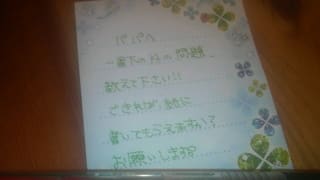 パパへ
一番下の段の問題
教えて下さい!!
できれば、紙に
書いてもらえますか?
お願いします